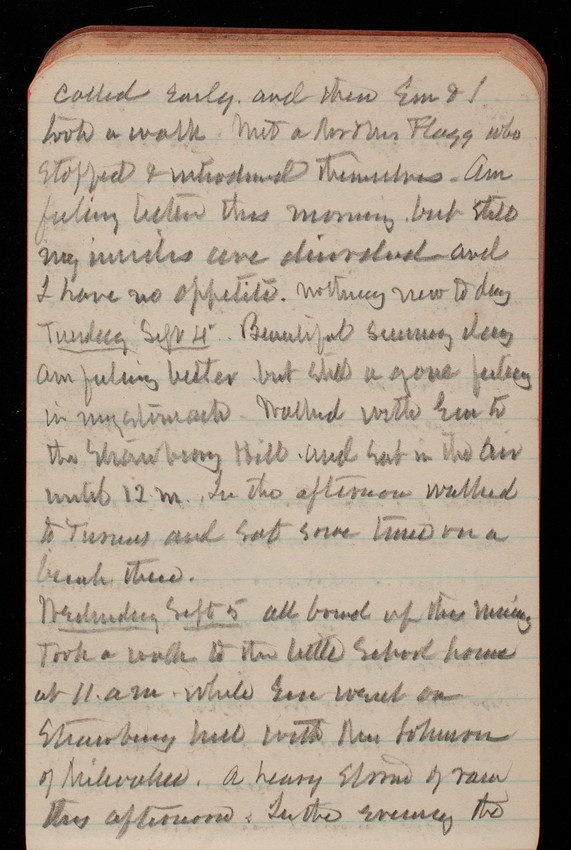 Called Early. and then Em & I
took a walk. Met a Flagg who
stopped & introduced themselves. Am
feeling better this morning. but still
my are disordered and
I have no appetite. nothing new to day
Tuesday Sept 4". Beautiful sunny day
am feeling better but still a gone feeling
in my stomach. Walked with Em to
the Strawberry Hill. and sat in the air
until 12. m. In the afternoon walked
to and sat some time on a
bench there.
Wednesday Sept 5 all bound up this morning
Took a walk to the little School house
at 11. a m. while Em went on
Strawberry hill with Johnson
of Milwakee. A heavy Storm of rain
this afternoon. In the evening the